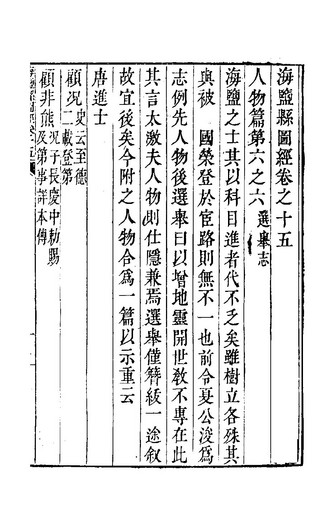 海鹽縣圖經卷之十五
人物篇第六之六選舉志
海鹽之士其以科目進者代不乏矣雖樹立各殊其
與被 國榮登於宦路則無不一也前令夏公浚爲
志例先人物後選舉曰以增地靈開世敎不專在此
其言太激夫人物則仕隱兼焉選舉僅簪紱一途叙
故宜後矣今附之人物合爲一篇以示重云
唐進士
顧况史云至德二載登第
顧非熊况子長慶中勑賜及第事詳本傳